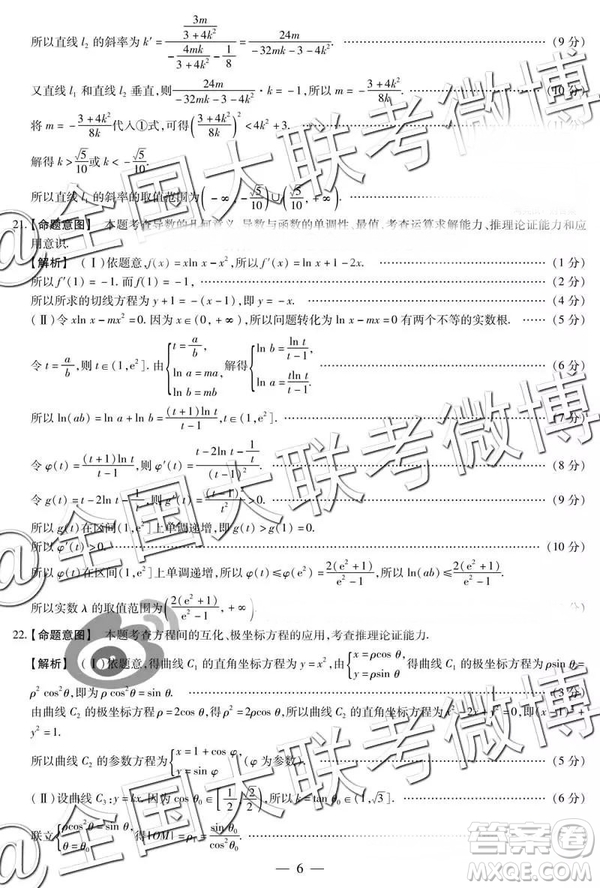 所以直线 l₂ 的斜率为 k′ = (3m/(3+4k²))/(-4mk/(3+4k²) - 1/8) = 24m/(-32mk-3-4k²). (9 分)
又直线 l₁ 和直线 l₂ 垂直,则 24m/(-32mk-3-4k²)·k = -1,所以 m = -(3+4k²)/8k. (10 分)
将 m = -(3+4k²)/8k 代入①式,可得((3+4k²)/8k)² < 4k²+3.
解得 k > √5/10 或 k < -√5/10.
所以直线 l₁ 的斜率的取值范围为(-∞, -√5/10)∪(√5/10, +∞).
21.【命题意图】 本题考查导数的几何意义、导数与函数的单调性、最值,考查运算求解能力、推理论证能力和应
用意识.
【解析】 (Ⅰ)依题意,f(x) = xln x - x²,所以 f′(x) = ln x + 1 - 2x. (1 分)
所以 f′(1) = -1. 而 f(1) = -1, (2 分)
所以所求的切线方程为 y + 1 = -(x - 1),即 y = -x. (4 分)
(Ⅱ)令 xln x - mx² = 0. 因为 x∈(0, +∞),所以问题转化为 ln x - mx = 0 有两个不等的实数根. (5 分)
令 t = a/b,则 t∈(1,e²]. 由{t = a/b, ln a = ma, ln b = mb 解得{ln b = ln t/(t-1), ln a = tln t/(t-1). (6 分)
所以 ln(ab) = ln a + ln b = (t+1)ln t/(t-1), t∈(1,e²]. (7 分)
令 φ(t) = (t+1)ln t/(t-1),则 φ′(t) = (t - 2ln t - 1/t)/(t-1)². (8 分)
令 g(t) = t - 2ln t - 1/t, (9 分)
所以 g(t)在区间(1,e²]上单调递增,即 g(t) > g(1) = 0.
所以 φ′(t) > 0. (10 分)
所以 φ(t)在区间(1,e²]上单调递增,所以 φ(t) ≤ φ(e²) = 2(e²+1)/(e²-1),所以 ln(ab) ≤ 2(e²+1)/(e²-1).
所以实数 λ 的取值范围为[2(e²+1)/(e²-1), +∞). (12 分)
22.【命题意图】 本题考查方程间的互化、极坐标方程的应用,考查推理论证能力.
【解析】 (Ⅰ)依题意,得曲线 C₁ 的直角坐标方程为 y = x²,由{x = ρcos θ, y = ρsin θ 得曲线 C₁ 的极坐标方程为 ρsin θ =
ρ²cos²θ,即为 ρcos²θ = sin θ. (3 分)
由曲线 C₂ 的极坐标方程 ρ = 2cos θ,得 ρ² = 2ρcos θ,所以曲线 C₂ 的直角坐标方程为 x² - 2x + y² = 0,即(x - 1)² +
y² = 1.
所以曲线 C₂ 的参数方程为{x = 1 + cos φ, y = sin φ (φ 为参数). (5 分)
(Ⅱ)设曲线 C₃: y = kx. 因为 cos θ₀∈[1/2, √2/2),所以 k = tan θ₀∈(1, √3]. (6 分)
联立{ρcos²θ = sin θ, θ = θ₀, 得|OM| = ρ₁ = sin θ₀/cos²θ₀.
6
@全国大联考微博
@全国大联考微博
@全国大联考微博
答案圈
MXQE.COM